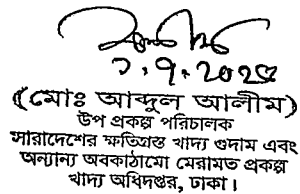 ১.৭.২০২৫
(মোঃ আব্দুল আলীম)
উপ প্রকল্প পরিচালক
সারাদেশের ক্ষতিগ্রস্ত খাদ্য গুদাম এবং
অন্যান্য অবকাঠামো মেরামত প্রকল্প
খাদ্য অধিদপ্তর, ঢাকা।